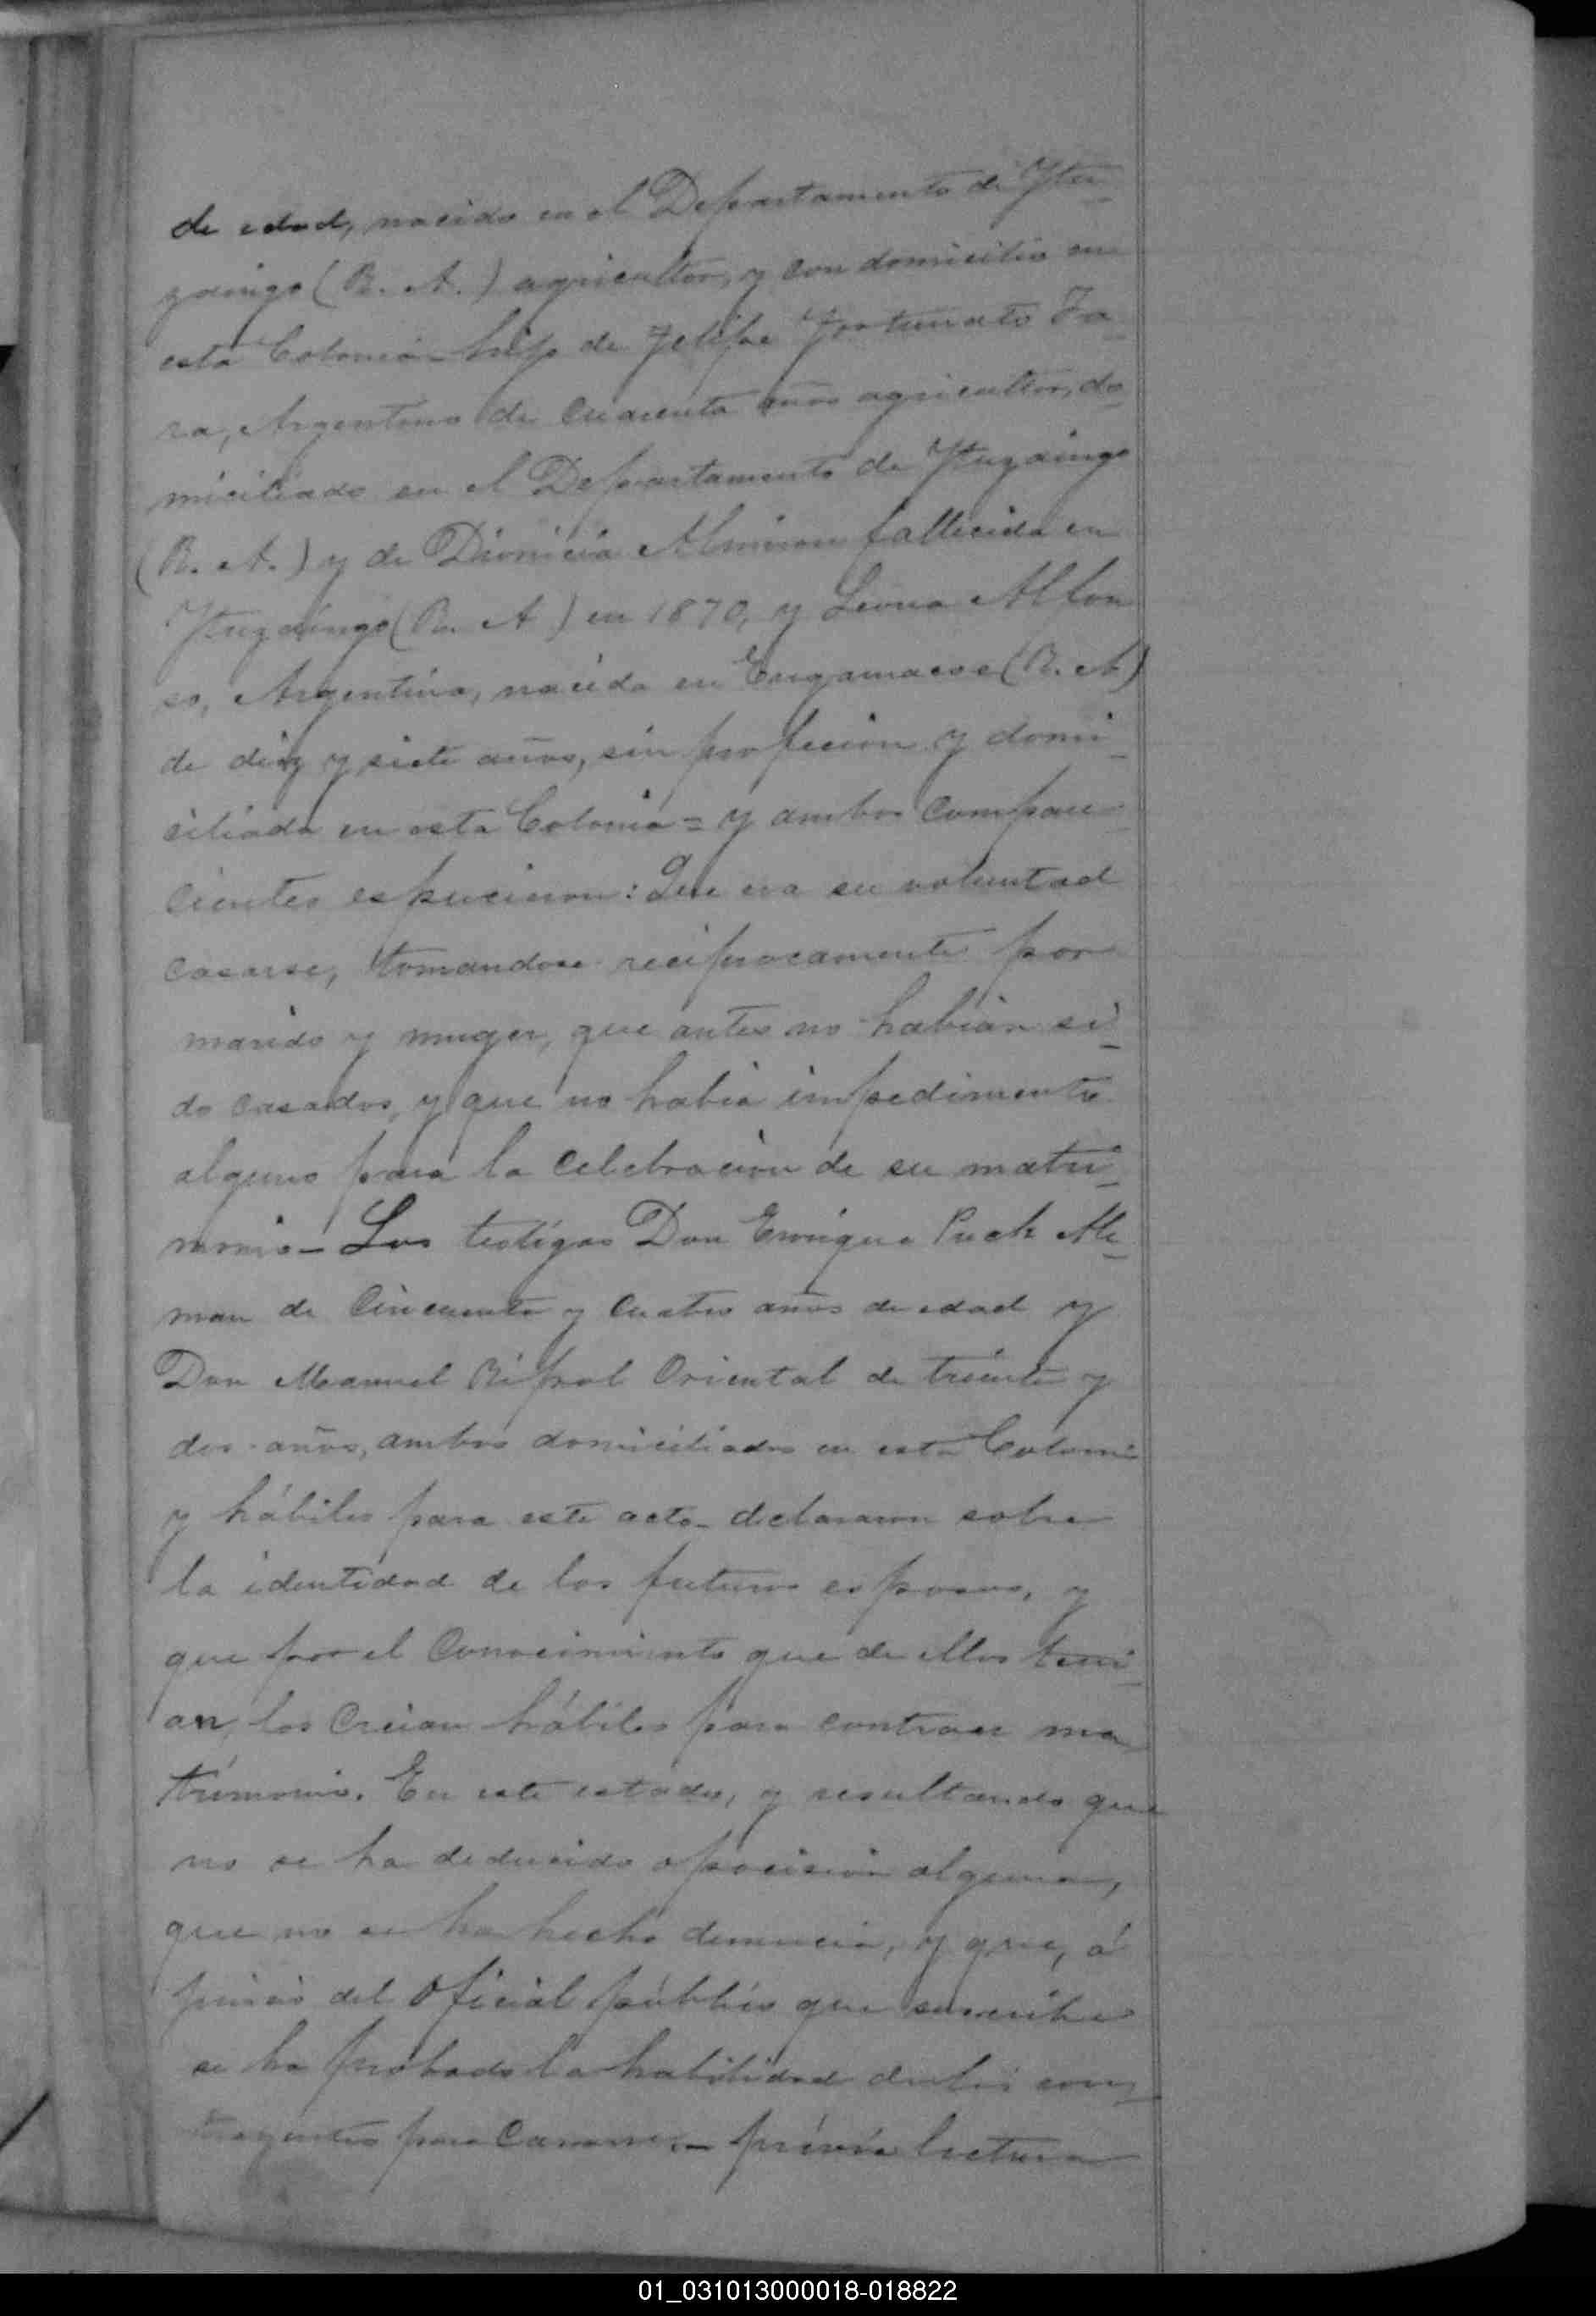 de edad, nacido en el Departamento de Ytu-
zaingo (R. A.) agricultor, y con domicilio en
esta Colonia - hijo de Felipe Fortunato Fa-
ra, Argentino de cuarenta años agricultor, do-
miciliado en el Departamento de Ytuzaingo
(R. A.) y de Dionicia Almiron fallecida en
Ytuzaingo (R. A) en 1870, y Leona Allon
so, Argentina, nacida en (R. A)
de diez y siete años, sin profecion y domi-
ciliada en esta Colonia = y ambos compare-
cientes espucieron: Que era su voluntad
casarse, tomandose reciprocamente por
marido y muger, que antes no habían si-
do casados, y que no habia impedimento
alguno para la celebracion de su matri-
monio - Los testigos Don Enrique Puck Ale-
man de cincuenta y cuatro años de edad y
Don Manuel Ripol Oriental de treinta y
dos años, ambos domiciliados en esta Coloni
y hábiles para este acto - declararon sobre
la identidad de los futuros esposos, y
que por el conocimiento que de ellos teni-
an, los creian hábiles para contraer ma
trimonio. En este estado, y resultando que
no se ha deducido oposicion alguna,
que no se ha hecho denuncia, y que, á
juicio del Oficial público que suscribe
se ha probado la habilidad de los con-
trayentes para casarse, - prévia lectura
01_031013000018-018822